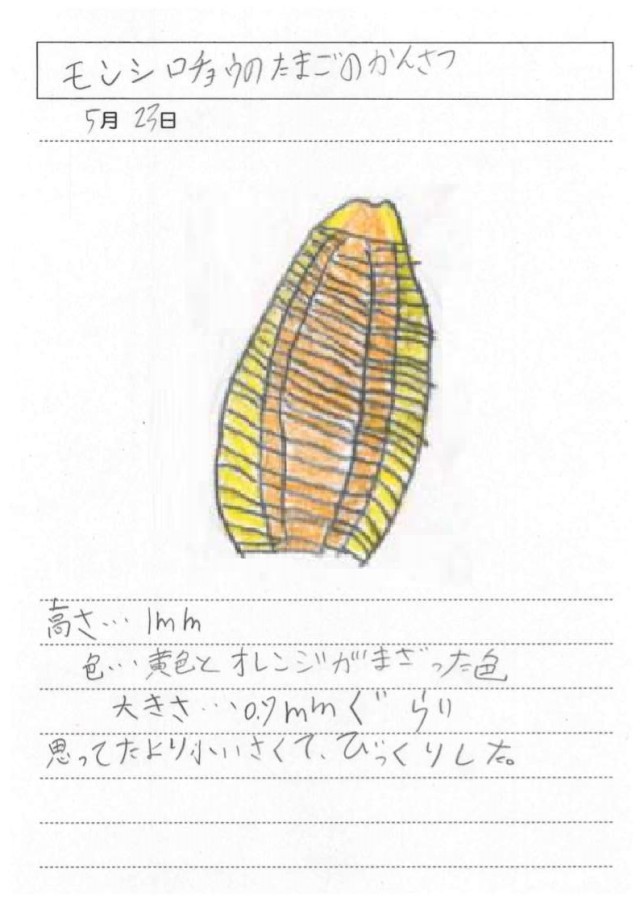 モンシロチョウのたまごのかんさつ
5月 23日
高さ… 1mm
色… 黄色とオレンジがまざった色
大きさ… 0.7mmぐらい
思ってたより小いさくて、びっくりした。